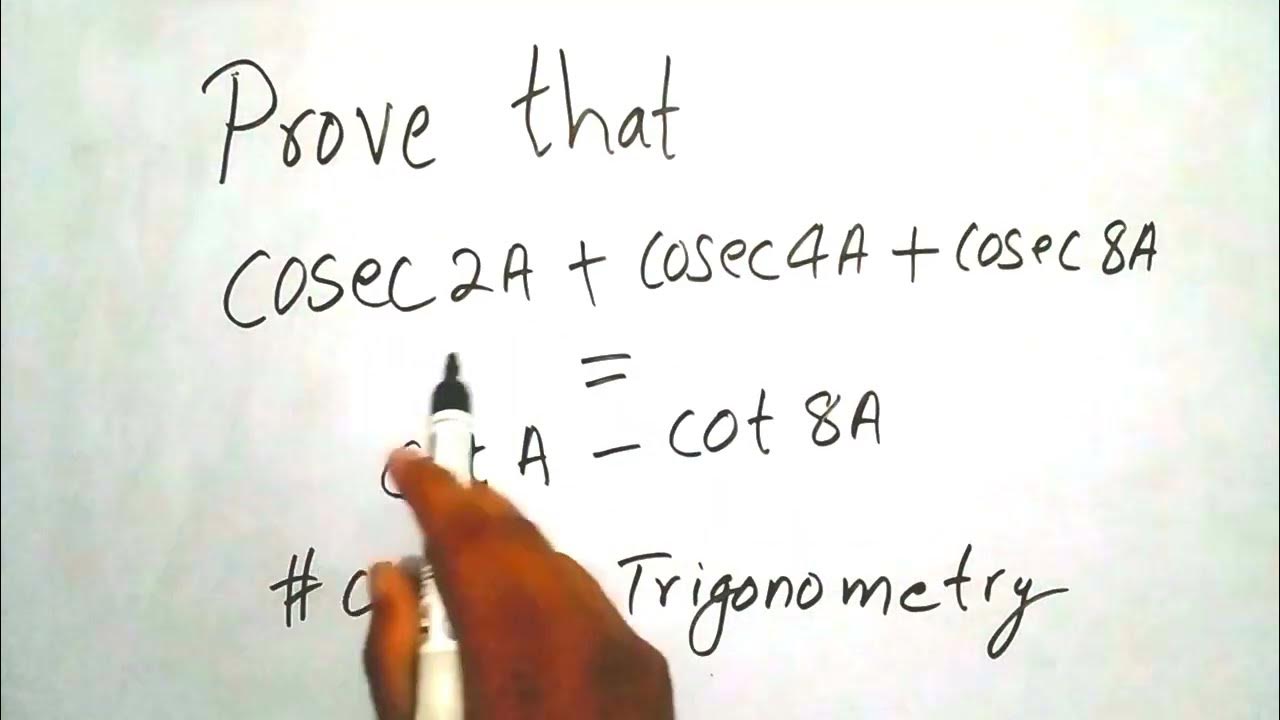 Prove that
cosec 2A + cosec 4A + cosec 8A
=
A - cot 8A
# Trigonometry